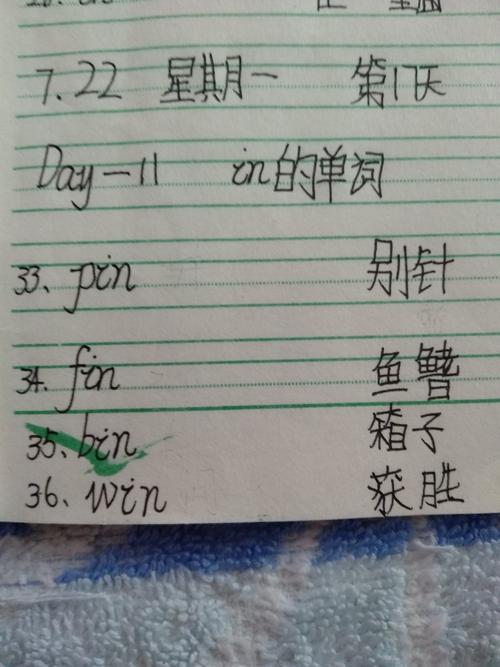 7.22 星期一 第11天
Day-11 in的单词
33、pin 别针
34、fin 鱼鳍
35、bin 箱子
36、win 获胜